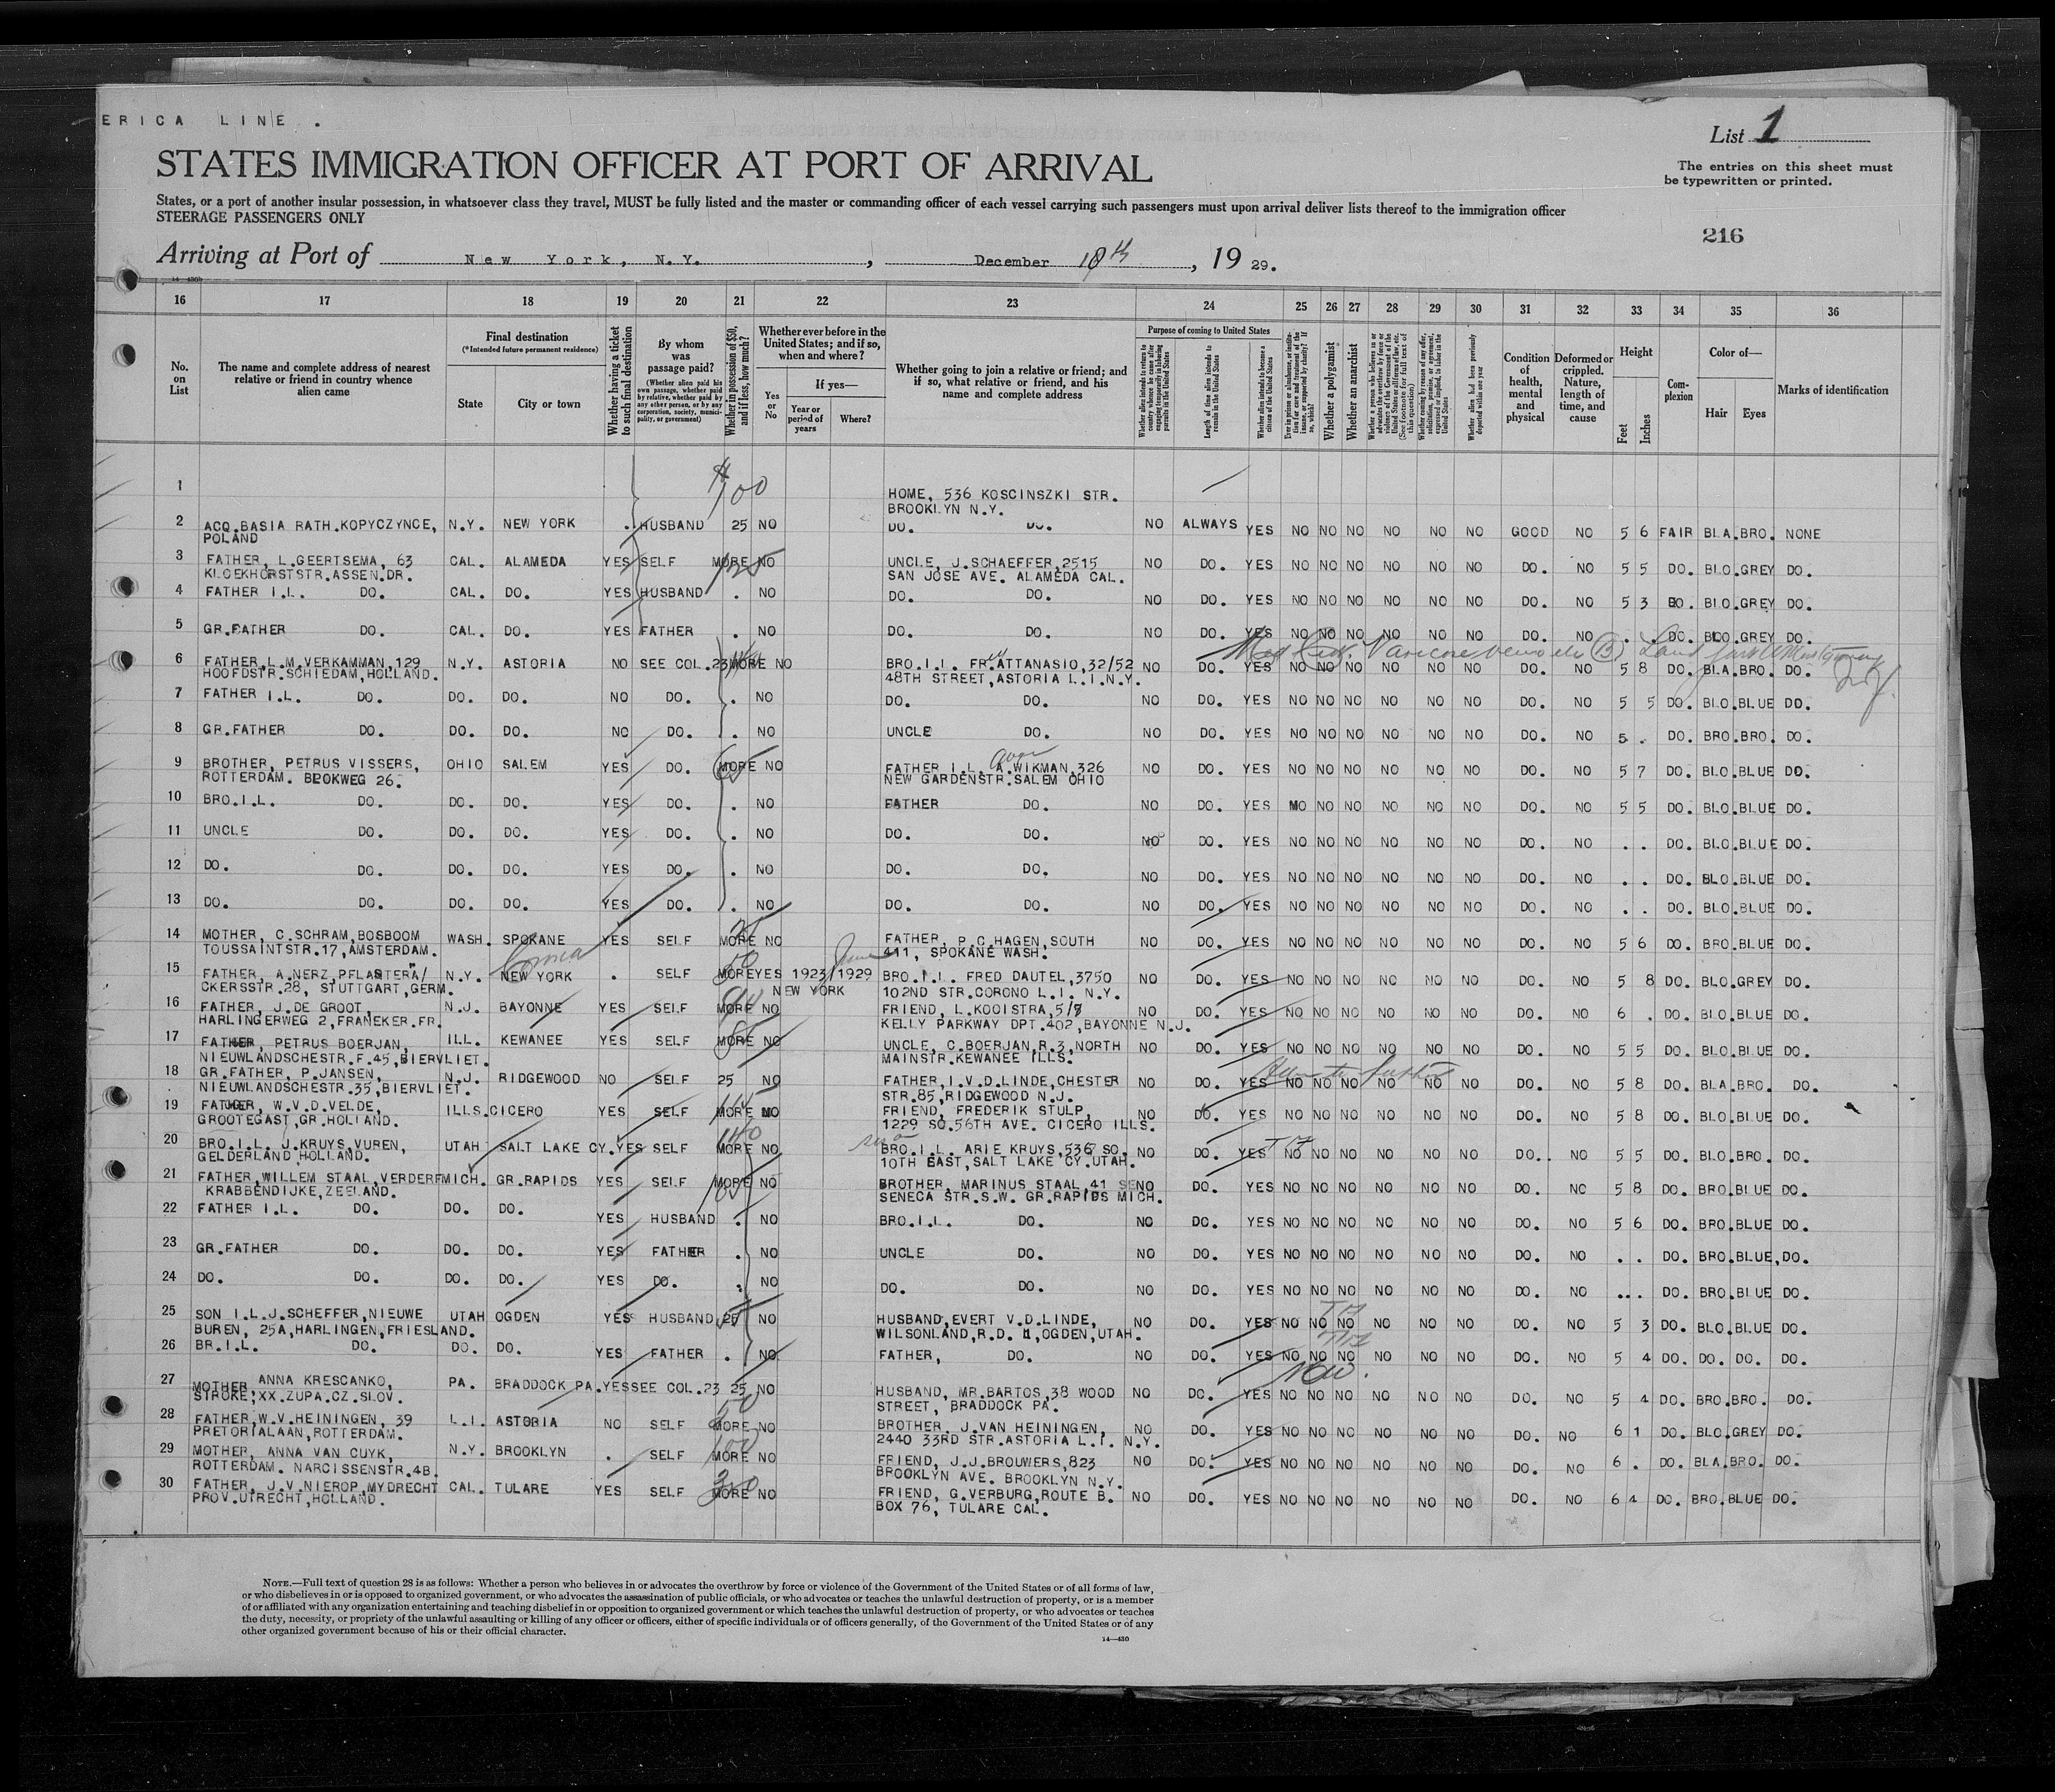 ERICA LINE .
List 1
STATES IMMIGRATION OFFICER AT PORT OF ARRIVAL
The entries on this sheet must
be typewritten or printed.
States, or a port of another insular possession, in whatsoever class they travel, MUST be fully listed and the master or commanding officer of each vessel carrying such passengers must upon arrival deliver lists thereof to the immigration officer
STEERAGE PASSENGERS ONLY
216
Arriving at Port of New York, N.Y. , December 18th , 19 29.
16 17 18 19 20 21 22 23 24 25 26 27 28 29 30 31 32 33 34 35 36
No. on List
The name and complete address of nearest relative or friend in country whence alien came
Final destination
(*Intended future permanent residence)
State
City or town
Whether having a ticket to such final destination
By whom was passage paid?
(Whether alien paid his own passage, whether paid by relative, whether paid by any other person, or by any corporation, society, municipality, or government)
Whether in possession of $50, and if less, how much?
Whether ever before in the United States; and if so, when and where?
Yes or No
If yes—
Year or period of years
Where?
Whether going to join a relative or friend; and if so, what relative or friend, and his name and complete address
Purpose of coming to United States
Length of time alien intends to remain in the United States
Whether alien intends to become a citizen of the United States
Whether a polygamist
Whether an anarchist
Condition of health, mental and physical
Deformed or crippled. Nature, length of time, and cause
Height
Feet
Inches
Complexion
Color of—
Hair
Eyes
Marks of identification
1 100 HOME, 536 KOSCINSZKI STR.
BROOKLYN N.Y.
2 ACQ.BASIA RATH.KOPYCZYNCE, N.Y. NEW YORK . HUSBAND 25 NO DO. DO. NO ALWAYS YES NO NO NO NO NO NO GOOD NO 5 6 FAIR BLA.BRO. NONE
POLAND
3 FATHER, L.GEERTSEMA, 63 CAL. ALAMEDA YES SELF MORE NO UNCLE, J.SCHAEFFER,2515 NO DO. YES NO NO NO NO NO NO DO. NO 5 5 DO. BLO.GREY DO.
KLOEKHORSTSTR.ASSEN.DR. SAN JOSE AVE. ALAMEDA CAL.
4 FATHER I.L. DO. CAL. DO. YES HUSBAND . NO DO. DO. NO DO. YES NO NO NO NO NO NO DO. NO 5 3 DO. BLO.GREY DO.
5 GR.FATHER DO. CAL. DO. YES FATHER . NO DO. DO. NO DO. YES NO NO NO NO NO NO DO. NO . . DO. BLO.GREY DO.
6 FATHER,L.M.VERKAMMAN,129 N.Y. ASTORIA NO SEE COL.23 MORE NO BRO.I.L. FR.ATTANASIO,32/52 NO DO. YES NO NO NO NO NO NO DO. NO 5 8 DO. BLA.BRO. DO.
HOOFDSTR.SCHIEDAM,HOLLAND. 48TH STREET,ASTORIA L.I.N.Y.
7 FATHER I.L. DO. DO. DO. NO DO. . NO DO. DO. NO DO. YES NO NO NO NO NO NO DO. NO 5 5 DO. BLO.BLUE DO.
8 GR.FATHER DO. DO. DO. NO DO. . NO UNCLE DO. NO DO. YES NO NO NO NO NO NO DO. NO 5 . DO. BRO.BRO. DO.
9 BROTHER, PETRUS VISSERS, OHIO SALEM YES DO. MORE NO FATHER I.L. A.WIKMAN,326 NO DO. YES NO NO NO NO NO NO DO. NO 5 7 DO. BLO.BLUE DO.
ROTTERDAM. BLOKWEG 26. NEW GARDENSTR.SALEM OHIO
10 BRO.I.L. DO. DO. DO. YES DO. . NO FATHER DO. NO DO. YES NO NO NO NO NO NO DO. NO 5 5 DO. BLO.BLUE DO.
11 UNCLE DO. DO. DO. YES DO. . NO DO. DO. NO DO. YES NO NO NO NO NO NO DO. NO . . DO. BLO.BLUE DO.
12 DO. DO. DO. DO. YES DO. . NO DO. DO. NO DO. YES NO NO NO NO NO NO DO. NO . . DO. BLO.BLUE DO.
13 DO. DO. DO. DO. YES DO. . NO DO. DO. NO DO. YES NO NO NO NO NO NO DO. NO . . DO. BLO.BLUE DO.
14 MOTHER, C.SCHRAM,BOSBOOM WASH. SPOKANE YES SELF MORE NO FATHER, P.C.HAGEN,SOUTH NO DO. YES NO NO NO NO NO NO DO. NO 5 6 DO. BRO.BLUE DO.
TOUSSAINTSTR.17,AMSTERDAM. 411, SPOKANE WASH.
15 FATHER, A.NERZ,PFLASTERA/ N.Y. NEW YORK Corona . SELF 50 MORE YES 1923/1929 June BRO.I.L. FRED DAUTEL,3750 NO DO. YES NO NO NO NO NO NO DO. NO 5 8 DO. BLO.GREY DO.
CKERSSTR.28, STUTTGART,GERM. NEW YORK 102ND STR.CORONO L.I. N.Y.
16 FATHER, J.DE GROOT, N.J. BAYONNE YES SELF MORE NO FRIEND, L.KOOISTRA,5/8 NO DO. YES NO NO NO NO NO NO DO. NO 6 . DO. BLO.BLUE DO.
HARLINGERWEG 2,FRANEKER.FR. KELLY PARKWAY DPT.402,BAYONNE N.J.
17 FATHER, PETRUS BOERJAN, ILL. KEWANEE YES SELF MORE NO UNCLE, C.BOERJAN,R.3,NORTH NO DO. YES NO NO NO NO NO NO DO. NO 5 5 DO. BLO.BLUE DO.
NIEUWLANDSCHESTR.F.45,BIERVLIET. MAINSTR.KEWANEE ILLS.
18 GR.FATHER, P.JANSEN, N.J. RIDGEWOOD NO SELF 25 NO FATHER,I.V.D.LINDE,CHESTER NO DO. YES NO NO NO NO NO NO DO. NO 5 8 DO. BLA.BRO. DO.
NIEUWLANDSCHESTR.35,BIERVLIET. STR.85,RIDGEWOOD N.J.
19 FATHER, W.V.D.VELDE, ILLS.CICERO YES SELF MORE NO FRIEND, FREDERIK STULP, NO DO. YES NO NO NO NO NO NO DO. NO 5 8 DO. BLO.BLUE DO.
GROOTEGAST,GR.HOLLAND. 1229 SO.56TH AVE. CICERO ILLS.
20 BRO.I.L. J.KRUYS,VUREN, UTAH SALT LAKE CY. YES SELF 140 MORE NO BRO.I.L. ARIE KRUYS,536 SO. NO DO. YES NO NO NO NO NO NO DO. NO 5 5 DO. BLO.BRO. DO.
GELDERLAND,HOLLAND. 10TH EAST,SALT LAKE CY.UTAH.
21 FATHER,WILLEM STAAL,VERDERF MICH. GR.RAPIDS YES SELF MORE NO BROTHER, MARINUS STAAL,41 SE NO DO. YES NO NO NO NO NO NO DO. NO 5 8 DO. BRO.BLUE DO.
KRABBENDIJKE,ZEELAND. SENECA STR.S.W. GR.RAPIDS MICH.
22 FATHER I.L. DO. DO. DO. YES HUSBAND . NO BRO.I.L. DO. NO DO. YES NO NO NO NO NO NO DO. NO 5 6 DO. BRO.BLUE DO.
23 GR.FATHER DO. DO. DO. YES FATHER . NO UNCLE DO. NO DO. YES NO NO NO NO NO NO DO. NO . . DO. BRO.BLUE,DO.
24 DO. DO. DO. DO. YES DO. . NO DO. DO. NO DO. YES NO NO NO NO NO NO DO. NO ... DO. BRO.BLUE DO.
25 SON I.L.J.SCHEFFER,NIEUWE UTAH OGDEN YES HUSBAND 25 NO HUSBAND,EVERT V.D.LINDE, NO DO. YES NO NO NO NO NO NO DO. NO 5 3 DO. BLO.BLUE DO.
BUREN, 25A,HARLINGEN,FRIESLAND. WILSONLAND,R.D. 1,OGDEN,UTAH.
26 BR.I.L. DO. DO. DO. YES FATHER . NO FATHER, DO. NO DO. YES NO NO NO NO NO NO DO. NO 5 4 DO. DO. DO. DO.
27 MOTHER ANNA KRESCANKO, PA. BRADDOCK PA. YES SEE COL.23 25 NO HUSBAND, MR.BARTOS,38 WOOD NO DO. YES NO NO NO NO NO NO DO. NO 5 4 DO. BRO.BRO. DO.
STROKE,XX.ZUPA.CZ.SLOV. STREET, BRADDOCK PA.
28 FATHER,W.V.HEININGEN, 39 L.I. ASTORIA NO SELF 50 MORE NO BROTHER, J.VAN HEININGEN, NO DO. YES NO NO NO NO NO NO DO. NO 6 1 DO. BLO.GREY DO.
PRETORIALAAN,ROTTERDAM. 2440 33RD STR.ASTORIA L.I. N.Y.
29 MOTHER, ANNA VAN CUYK, N.Y. BROOKLYN . SELF 100 MORE NO FRIEND, J.J.BROUWERS,823 NO DO. YES NO NO NO NO NO NO DO. NO 6 . DO. BLA.BRO. DO.
ROTTERDAM. NARCISSENSTR.4B. BROOKLYN AVE. BROOKLYN N.Y.
30 FATHER, J.V.NIEROP,MYDRECHT CAL. TULARE YES SELF 300 MORE NO FRIEND, G.VERBURG,ROUTE B. NO DO. YES NO NO NO NO NO NO DO. NO 6 4 DO. BRO.BLUE DO.
PROV.UTRECHT,HOLLAND. BOX 76, TULARE CAL.
NOTE.—Full text of question 28 is as follows: Whether a person who believes in or advocates the overthrow by force or violence of the Government of the United States or of all forms of law,
or who disbelieves in or is opposed to organized government, or who advocates the assassination of public officials, or who advocates or teaches the unlawful destruction of property, or is a member
of or affiliated with any organization entertaining and teaching disbelief in or opposition to organized government or which teaches the unlawful destruction of property, or who advocates or teaches
the duty, necessity, or propriety of the unlawful assaulting or killing of any officer or officers, either of specific individuals or of officers generally, of the Government of the United States or of any
other organized government because of his or their official character.
14—430